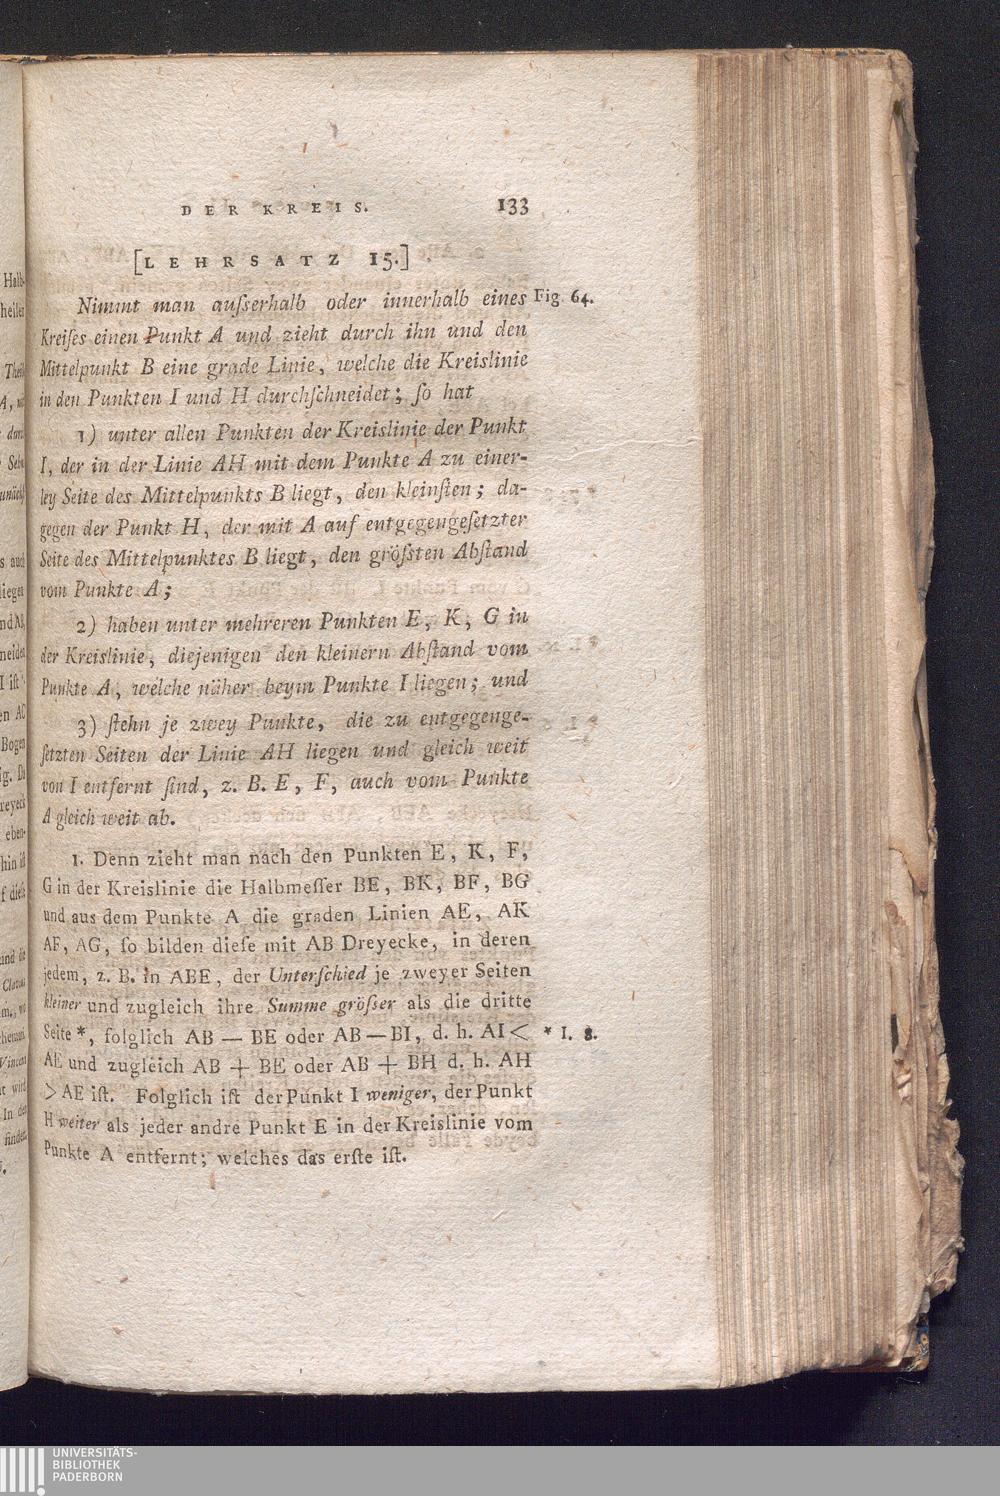 DER KREIS. 133
[LEHRSATZ 15.]
Nimmt man auſserhalb oder innerhalb eines Fig 64.
Kreiſes einen Punkt A und zieht durch ihn und den
Mittelpunkt B eine grade Linie, welche die Kreislinie
in den Punkten I und H durchſchneidet; ſo hat
1) unter allen Punkten der Kreislinie der Punkt
I, der in der Linie AH mit dem Punkte A zu einer-
ley Seite des Mittelpunkts B liegt, den kleinſten; da-
gegen der Punkt H, der mit A auf entgegengeſetzter
Seite des Mittelpunktes B liegt, den gröſsten Abſtand
vom Punkte A;
2) haben unter mehreren Punkten E, K, G in
der Kreislinie, diejenigen den kleinern Abſtand vom
Punkte A, welche näher beym Punkte I liegen; und
3) ſtehn je zwey Punkte, die zu entgegenge-
ſetzten Seiten der Linie AH liegen und gleich weit
von I entfernt ſind, z. B. E, F, auch vom Punkte
A gleich weit ab.
1. Denn zieht man nach den Punkten E, K, F,
G in der Kreislinie die Halbmeſſer BE, BK, BF, BG
und aus dem Punkte A die graden Linien AE, AK
AF, AG, ſo bilden dieſe mit AB Dreyecke, in deren
jedem, z. B. in ABE, der Unterſchied je zweyer Seiten
kleiner und zugleich ihre Summe gröſser als die dritte
Seite *, folglich AB — BE oder AB — BI, d. h. AI < * I. 8.
AE und zugleich AB + BE oder AB + BH d. h. AH
> AE iſt. Folglich iſt der Punkt I weniger, der Punkt
H weiter als jeder andre Punkt E in der Kreislinie vom
Punkte A entfernt; welches das erſte iſt.
UNIVERSITÄTS-
BIBLIOTHEK
PADERBORN